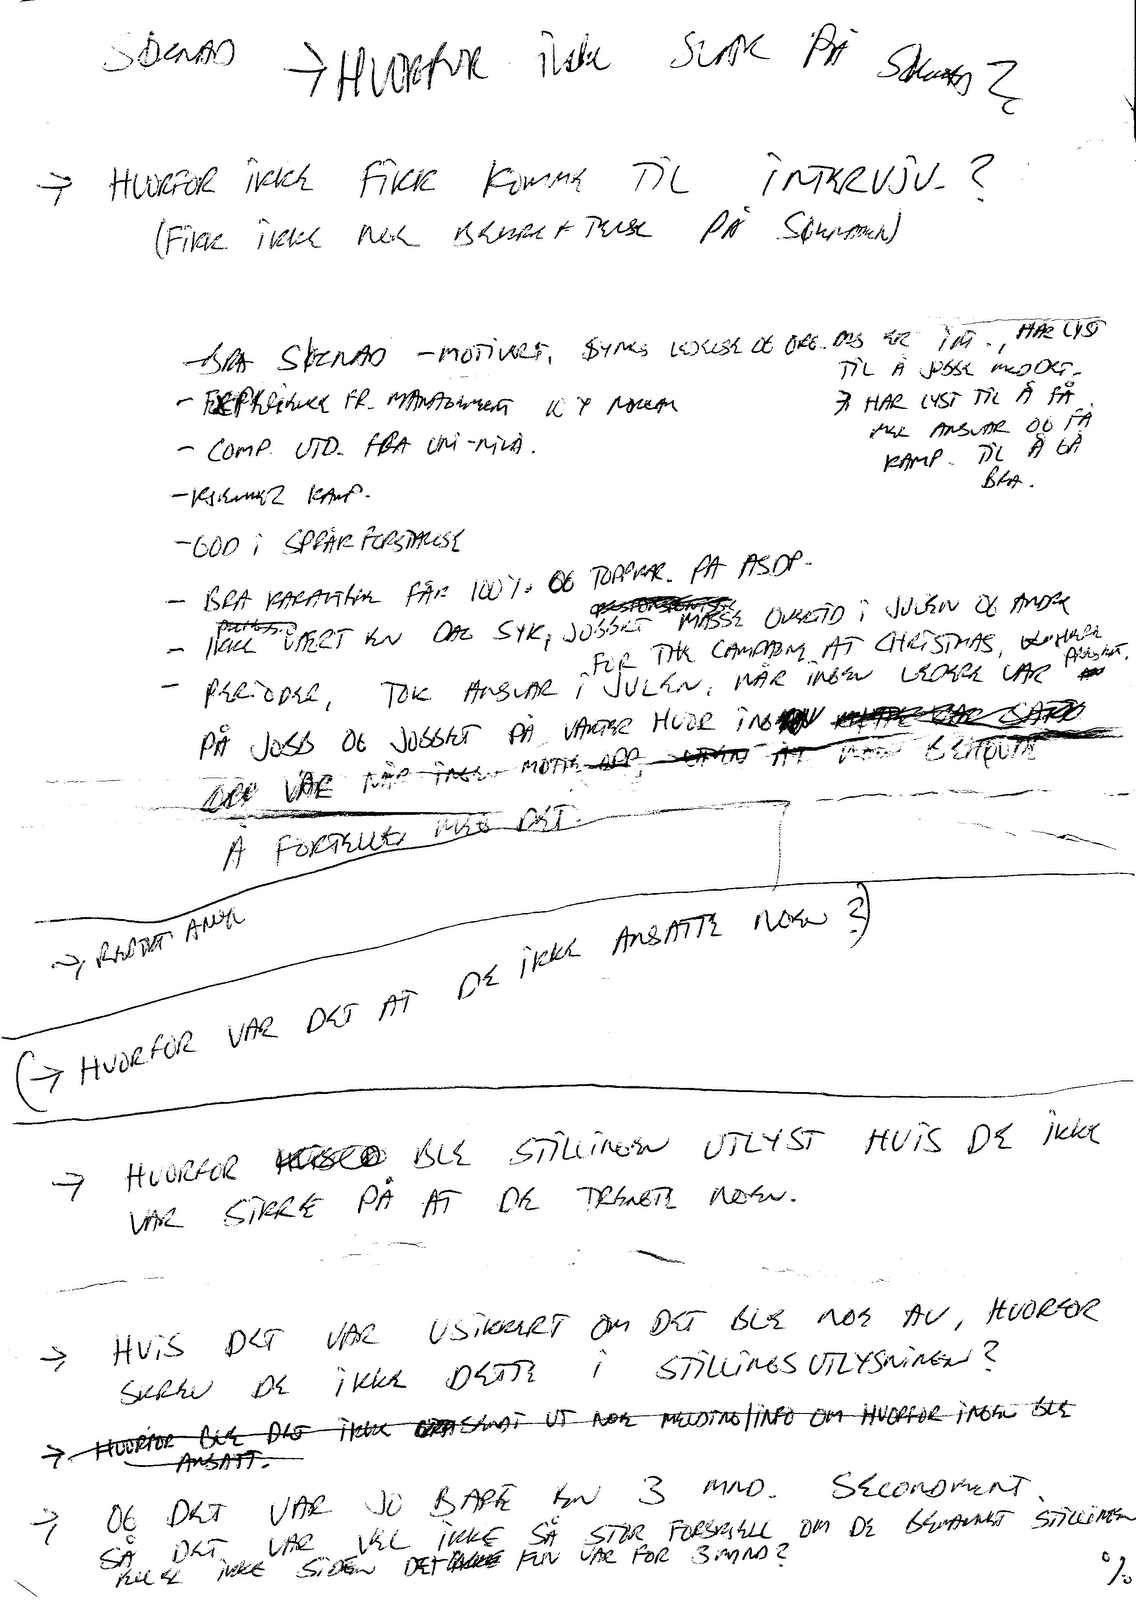 SØKNAD → HVORFOR IKKE SVAR PÅ SØKNAD?
→ HVORFOR IKKE FIKK KOMME TIL INTERVJU.?
(FIKK IKKE NOE BEKREFTELSE PÅ SØKNADEN)
- BRA SØKNAD - MOTIVERT, SYNES LEDELSE OG ORG. ER INT., HAR LYST
TIL Å JOBBE MED DET.
→ HAR LYST TIL Å FÅ
MER ANSVAR OG FÅ
KAMP. TIL Å GÅ
BRA.
- FR. MANAGEMENT
- COMP. UTD. FRA UNI-NIVÅ.
- KJENNER KAMP.
- GOD I SPRÅKFORSTÅELSE
- BRA KARAKTERER FÅR 100% OG TOPPKAR. PÅ ASOP.
- IKKE VÆRT EN DAG SYK, JOBBET MASSE OVERTID I JULEN OG ANDRE
FOR THE CAMPAIGN AT CHRISTMAS,
- PERIODER, TOK ANSVAR I JULEN, NÅR INGEN LEDERE VAR
PÅ JOBB OG JOBBET PÅ VAKTER HVOR INGEN
VAR NÅR INGEN MØTTE OPP, UTEN AT MAN BEHØVDE
Å FORTELLE MEG DET.
→
(→ HVORFOR VAR DET AT DE IKKE ANSATTE NOEN?)
→ HVORFOR BLE STILLINGEN UTLYST HVIS DE IKKE
VAR SIKRE PÅ AT DE TRENGTE NOEN.
→ HVIS DET VAR USIKKERT OM DET BLE NOE AV, HVORFOR
SKREV DE IKKE DETTE I STILLINGSUTLYSNINGEN?
→ HVORFOR BLE DET IKKE SENDT UT NOE MELDING/INFO OM HVORFOR INGEN BLE
ANSATT.
→ OG DET VAR JO BARE EN 3 MND. SECONDMENT.
SÅ DET VAR VEL IKKE SÅ STOR FORSKJELL OM DE BEMANNET STILLINGEN
ELLER IKKE SIDEN DET KUN VAR FOR 3 MND?
%